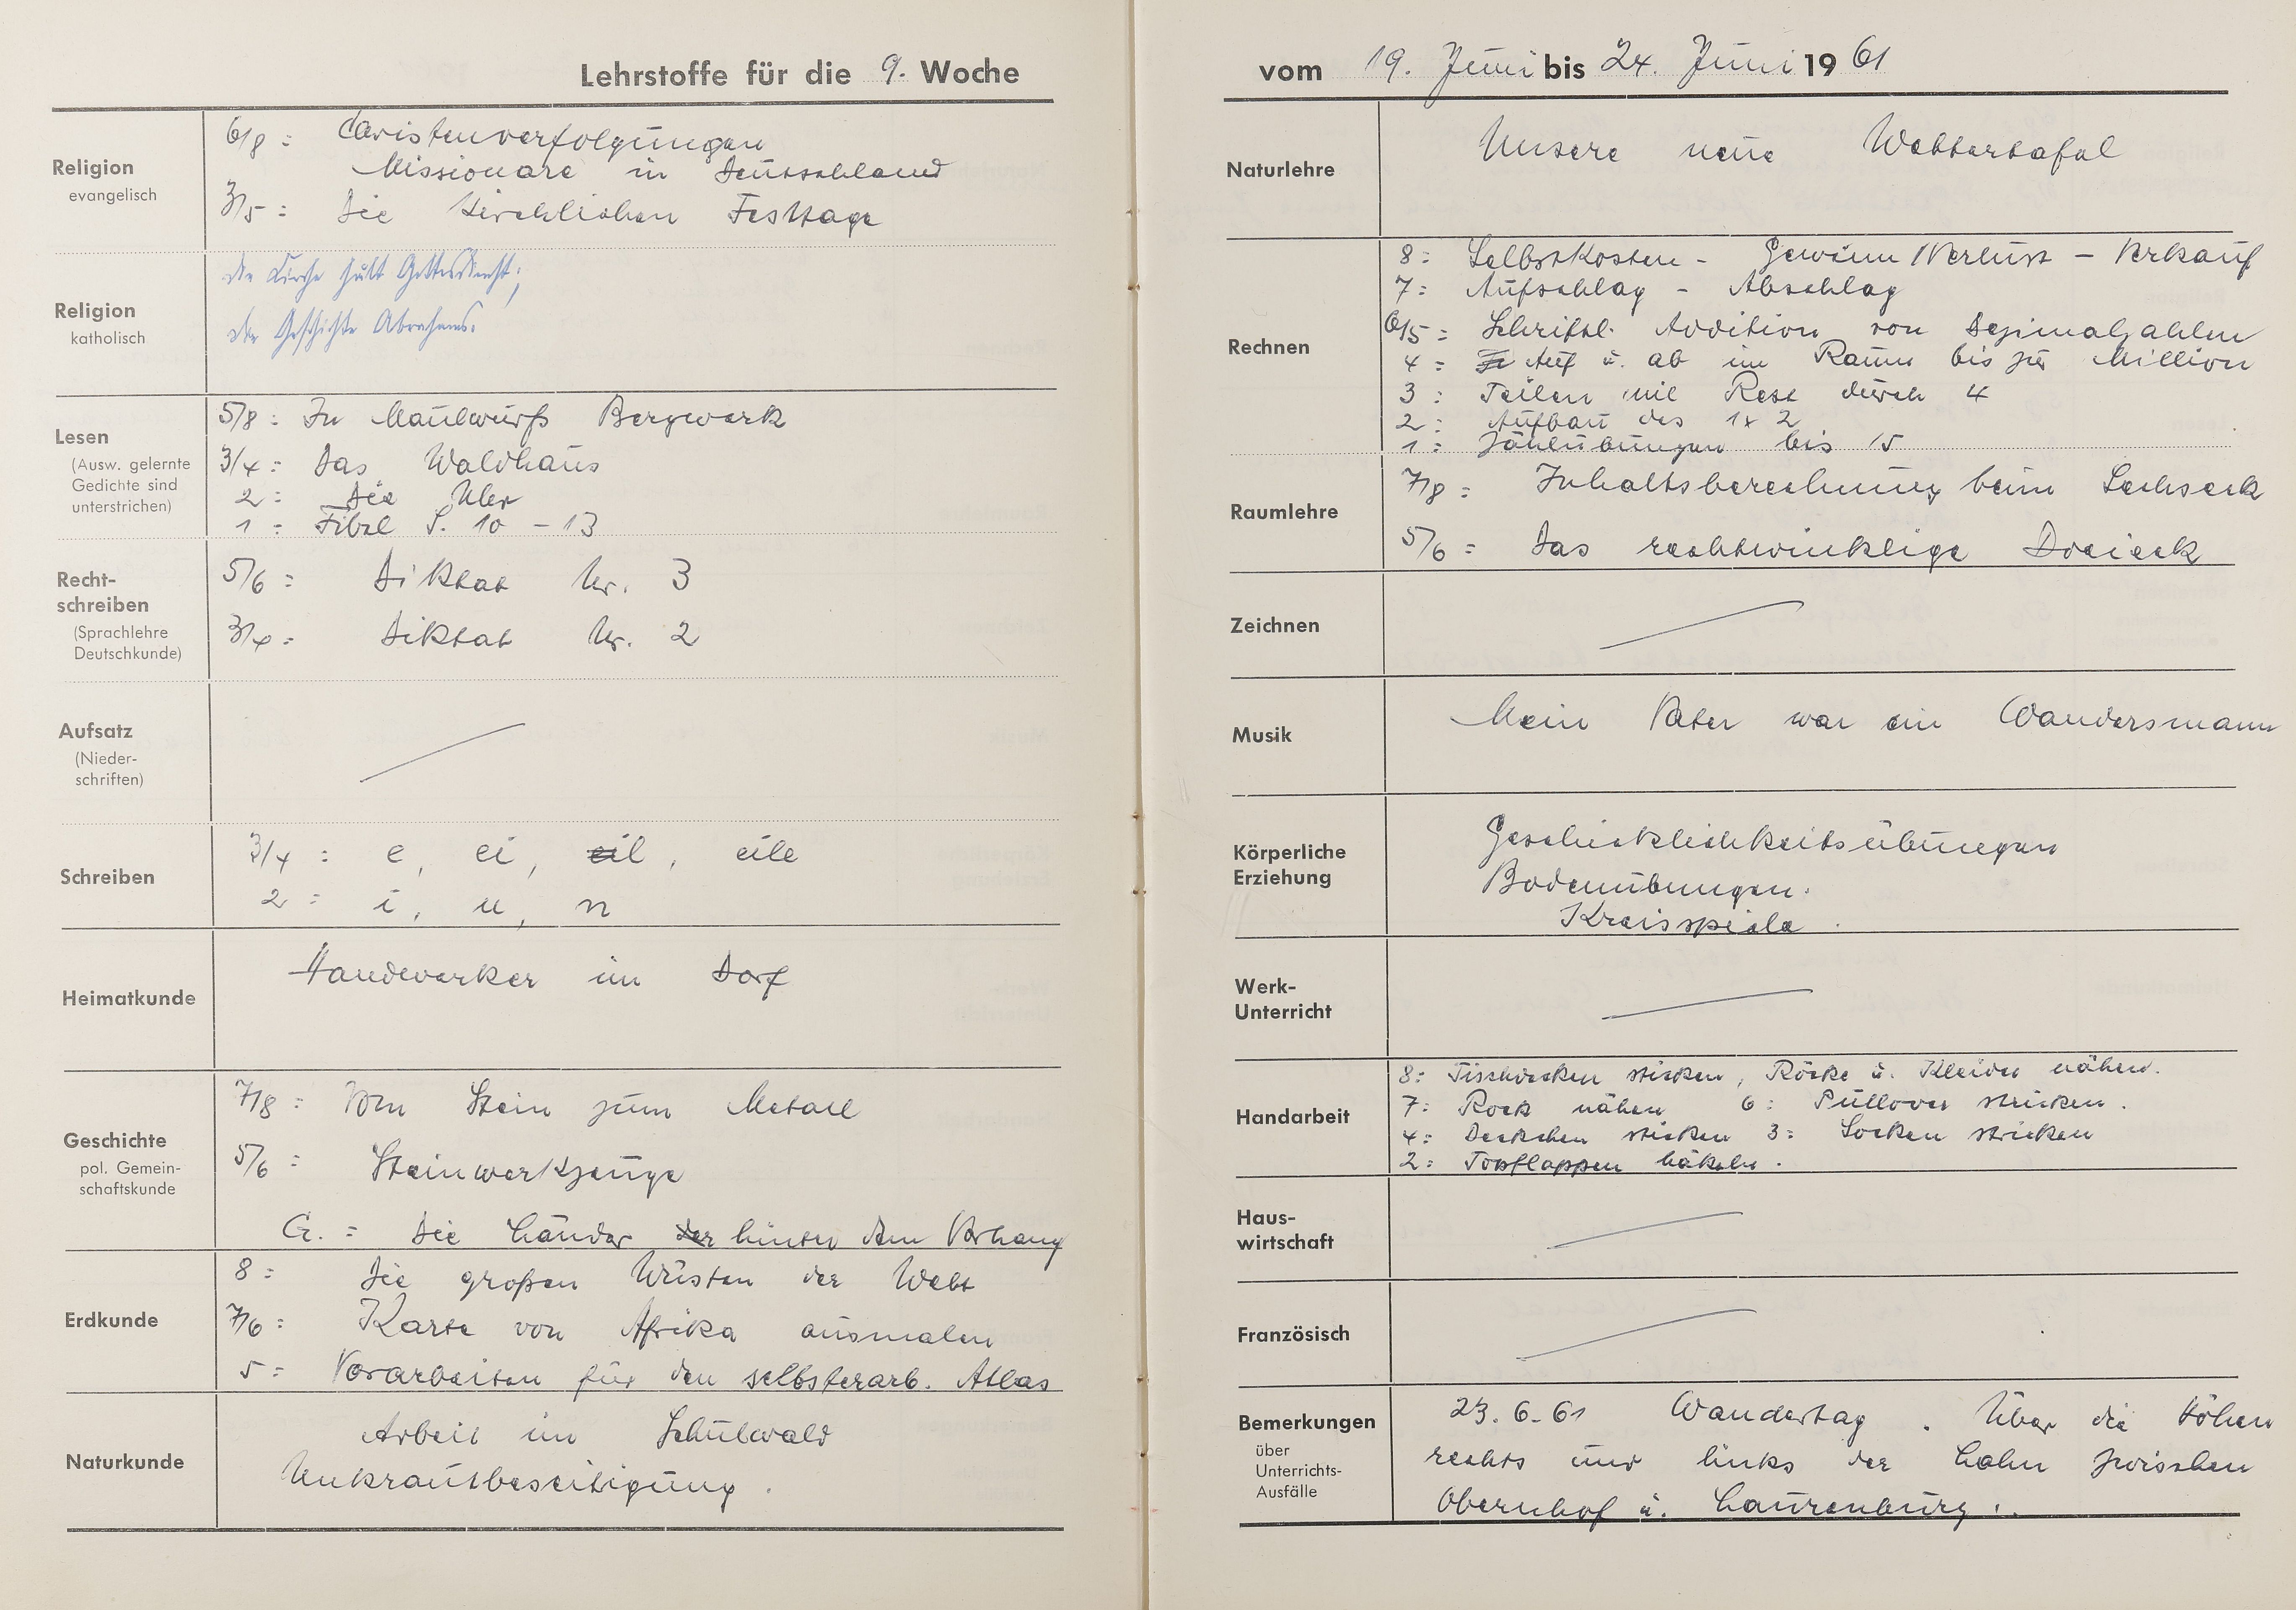 Lehrstoffe für die 9. Woche
Religion
evangelisch
6/8 = Christenverfolgungen
Missionare in Deutschland
3/5 = Die kirchlichen Festtage
Religion
katholisch
Die Kirche hält Gottesdienst;
Die Geschichte Abrahams.
Lesen
(Ausw. gelernte
Gedichte sind
unterstrichen)
5/8 = In Maulwurfs Bergwerk
3/4 = Das Waldhaus
2 = Die Uhr
1 = Fibel S. 10 - 13
Recht-
schreiben
(Sprachlehre
Deutschkunde)
5/6 = Diktat Nr. 3
3/4 = Diktat Nr. 2
Aufsatz
(Nieder-
schriften)
Schreiben
3/4 = e, ei, eil, eile
2 = i, u, n
Heimatkunde
Handwerker im Dorf
Geschichte
pol. Gemein-
schaftskunde
7/8 = Vom Stein zum Metall
5/6 = Steinwerkzeuge
G. = Die Länder der hinter dem Vorhang
Erdkunde
8 = Die großen Wüsten der Welt
7/6 = Karte von Afrika ausmalen
5 = Vorarbeiten für den selbsterarb. Atlas
Naturkunde
Arbeit im Schulwald
Unkrautbeseitigung.
vom 19. Juni bis 24. Juni 1961
Naturlehre
Unsere neue Wettertafel
Rechnen
8 = Selbstkosten - Gewinn/Verlust - Verkauf
7 = Aufschlag - Abschlag
6/5 = Schriftl. Addition von Dezimalzahlen
4 = Auf u. ab im Raum bis zur Million
3 = Teilen mit Rest durch 4
2 = Aufbau des 1x2
1 = Zählübungen bis 15
Raumlehre
7/8 = Inhaltsberechnung beim Sechseck
5/6 = Das rechtwinklige Dreieck
Zeichnen
Musik
Mein Vater war ein Wandersmann
Körperliche
Erziehung
Geschicklichkeitsübungen
Bodenübungen.
Kreisspiele.
Werk-
Unterricht
Handarbeit
8 = Tischdecken sticken, Röcke u. Kleider nähen.
7 = Rock nähen 6 = Pullover stricken.
4 = Deckchen sticken 3 = Socken stricken
2 = Topflappen häkeln.
Haus-
wirtschaft
Französisch
Bemerkungen
über
Unterrichts-
Ausfälle
23.6.61 Wandertag. Über die Höhen
rechts und links der Lahn zwischen
Obernhof u. Laurenburg.